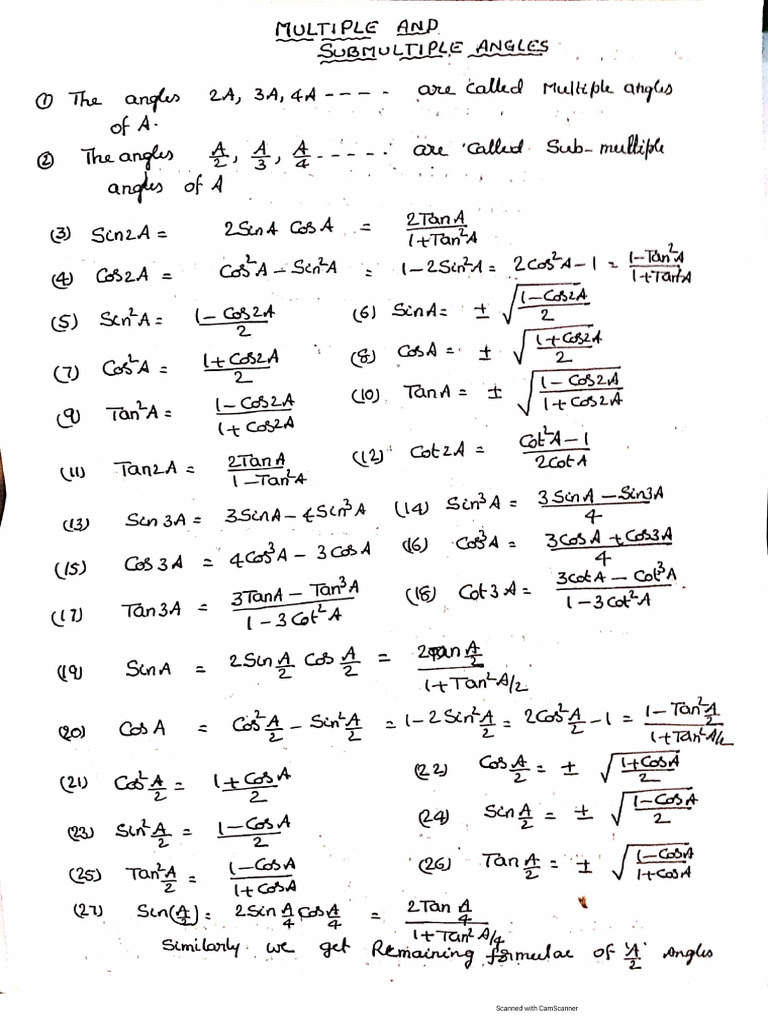 MULTIPLE AND
SUBMULTIPLE ANGLES
① The angles 2A, 3A, 4A ---- are called Multiple angles
of A.
② The angles A/2, A/3, A/4 ----- are called Sub-multiple
angles of A
(3) Sin2A = 2SinA CosA = 2TanA/(1+Tan²A)
(4) Cos2A = Cos²A - Sin²A = 1-2Sin²A = 2Cos²A-1 = (1-Tan²A)/(1+Tan²A)
(5) Sin²A = (1-Cos2A)/2 (6) SinA = ± √((1-Cos2A)/2)
(7) Cos²A = (1+Cos2A)/2 (8) CosA = ± √((1+Cos2A)/2)
(9) Tan²A = (1-Cos2A)/(1+Cos2A) (10) TanA = ± √((1-Cos2A)/(1+Cos2A))
(11) Tan2A = 2TanA/(1-Tan²A) (12) Cot2A = (Cot²A-1)/(2CotA)
(13) Sin3A = 3SinA - 4Sin³A (14) Sin³A = (3SinA - Sin3A)/4
(15) Cos3A = 4Cos³A - 3CosA (16) Cos³A = (3CosA + Cos3A)/4
(17) Tan3A = (3TanA - Tan³A)/(1-3Cot²A) (18) Cot3A = (3CotA - Cot³A)/(1-3Cot²A)
(19) SinA = 2Sin A/2 Cos A/2 = (2Tan A/2)/(1+Tan²A/2)
(20) CosA = Cos²A/2 - Sin²A/2 = 1-2Sin²A/2 = 2Cos²A/2 - 1 = (1-Tan²A/2)/(1+Tan²A/2)
(21) Cos²A/2 = (1+CosA)/2 (22) Cos A/2 = ± √((1+CosA)/2)
(23) Sin²A/2 = (1-CosA)/2 (24) Sin A/2 = ± √((1-CosA)/2)
(25) Tan²A/2 = (1-CosA)/(1+CosA) (26) Tan A/2 = ± √((1-CosA)/(1+CosA))
(27) Sin(A/2) = 2Sin A/4 Cos A/4 = (2Tan A/4)/(1+Tan²A/4)
Similarly we get Remaining formulae of 'A/2' Angles
Scanned with CamScanner